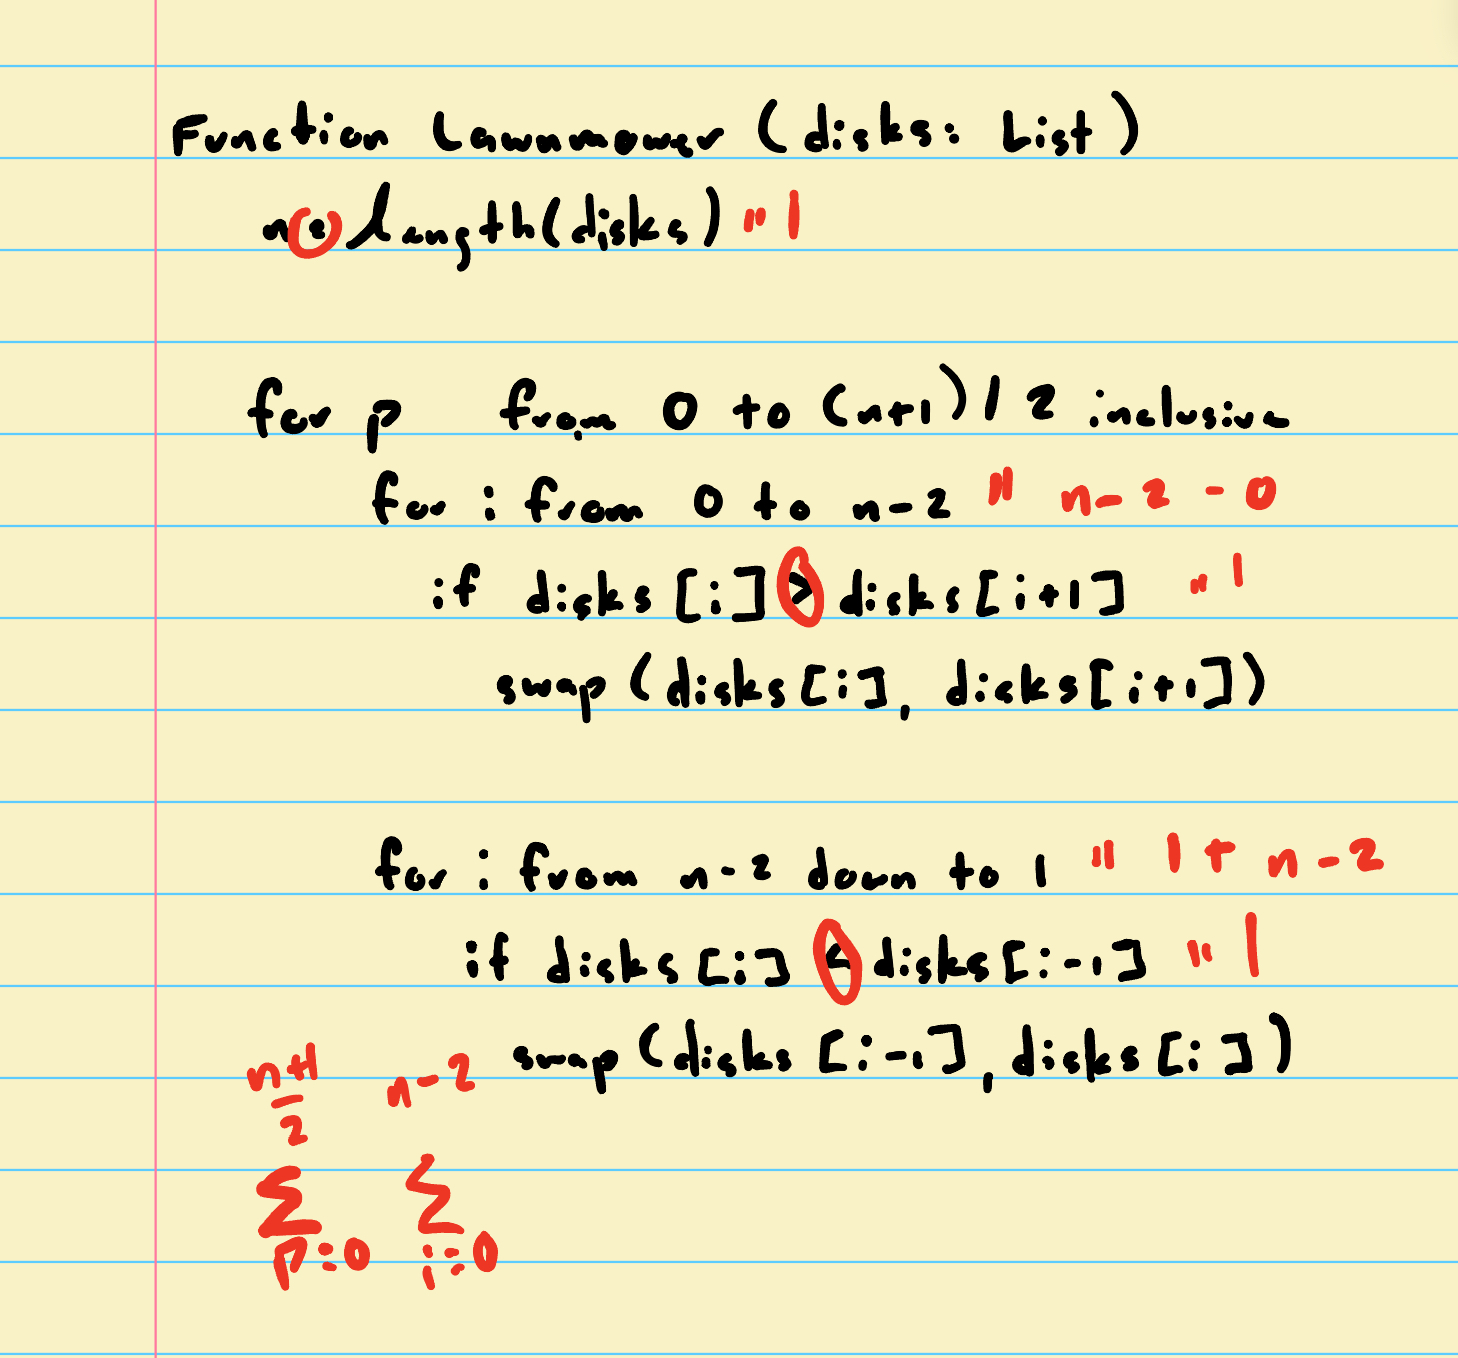 Function Lawnmower (disks: List)
n = length(disks) " 1
for p from 0 to (n+1)/2 inclusive
for i from 0 to n-2 " n-2-0
if disks[i] > disks[i+1] " 1
swap(disks[i], disks[i+1])
for i from n-2 down to 1 " 1+n-2
if disks[i] < disks[i-1] " 1
swap(disks[i-1], disks[i])
n+1 n-2
2
Σ Σ
p=0 i=0